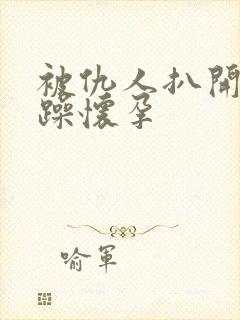 被仇人扒開
躁懷孕
喻軍